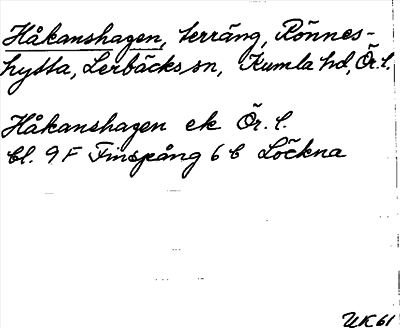 Håkanshagen, terräng, Rönnes-
hytta, Lerbäcks sn, Kumla hd, Ör. l.
Håkanshagen ek Ör. l.
bl. 9 F Finspång 6 b Löckna
UK 61